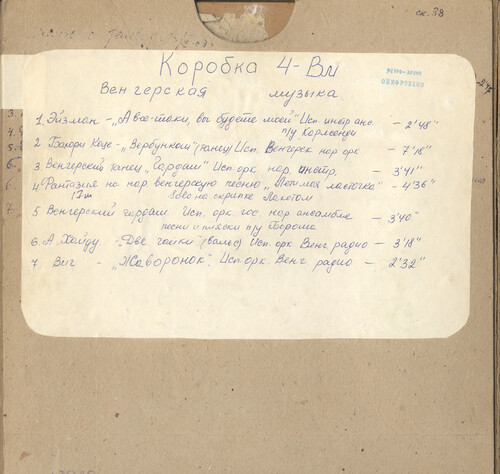 ск. 38
Коробка 4-Вм
Венгерская музыка
1 Эйзман - „А все-таки, вы будете моей" Исп. инстр анс. - 2'48"
п/у
2 "Вербункош" (танец) Исп. Венгерск нар орк - 7'16"
3. Венгерский танец „Чардаш" Исп. орк нар. инстр. - 3'41"
4. Фантазия на нар венгерскую песню - 4'36"
на скрипке
5 Венгерский чардаш Исп. орк гос нар ансамбля - 3'40"
песни и пляски п/у
6. А Хайду - „Две чайки" (вальс) Исп. орк Венг радио - 3'18"
7. - „Жаворонок". Исп. орк. Венг радио - 2'32"